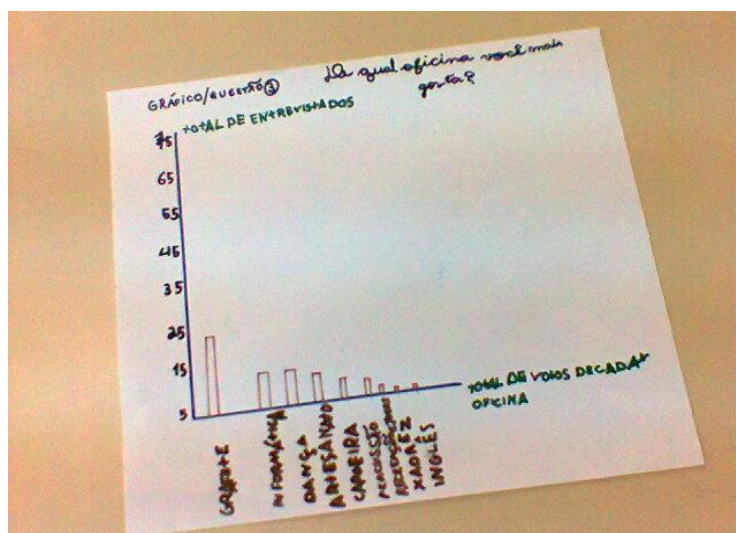 GRÁFICO/QUESTÃO ③
Da qual oficina você mais
gosta?
TOTAL DE ENTREVISTADOS
75
65
55
45
35
25
15
5
TOTAL DE VOTOS DE CADA
OFICINA
GRAFITE
INFORMÁTICA
DANÇA
ARTESANATO
CAPOEIRA
PERCUSSÃO
XADREZ
INGLÊS